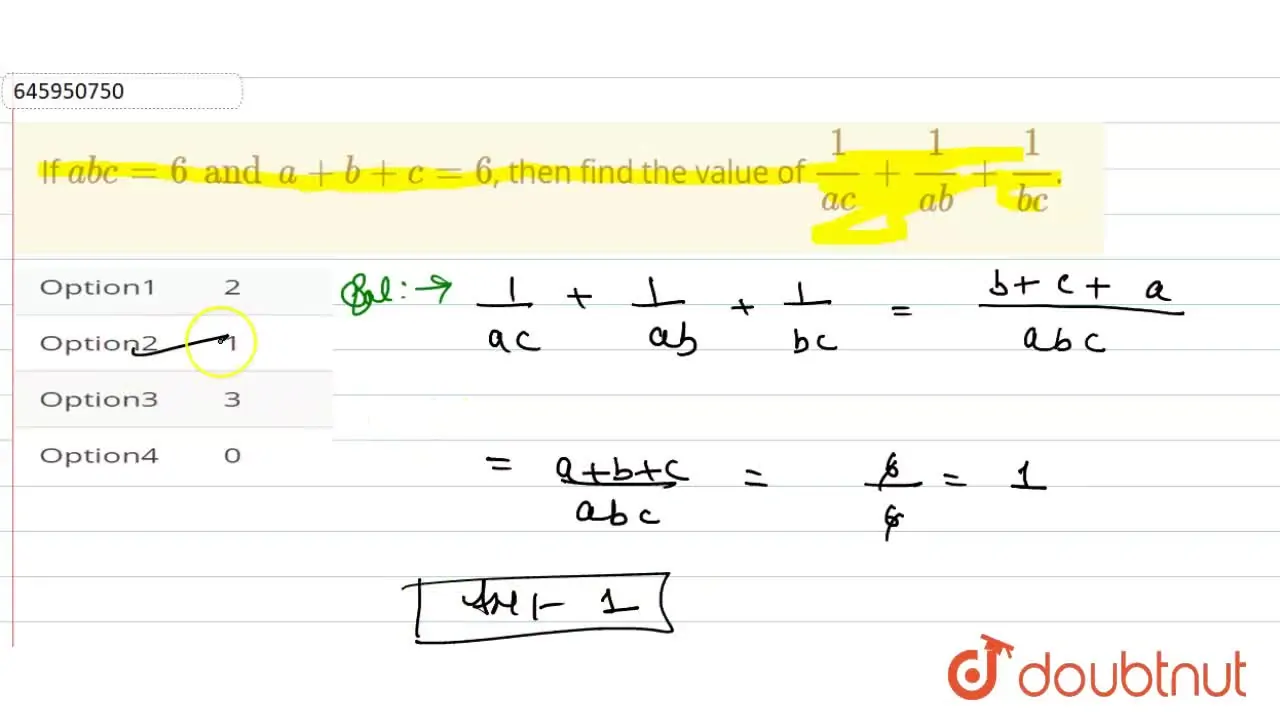 645950750
If abc = 6 and a + b + c = 6, then find the value of 1/ac + 1/ab + 1/bc.
Option1 2
Option2 1
Option3 3
Option4 0
Sol: → 1/ac + 1/ab + 1/bc = b+c+a/abc
= a+b+c/abc = 6/6 = 1
Ans :- 1
doubtnut